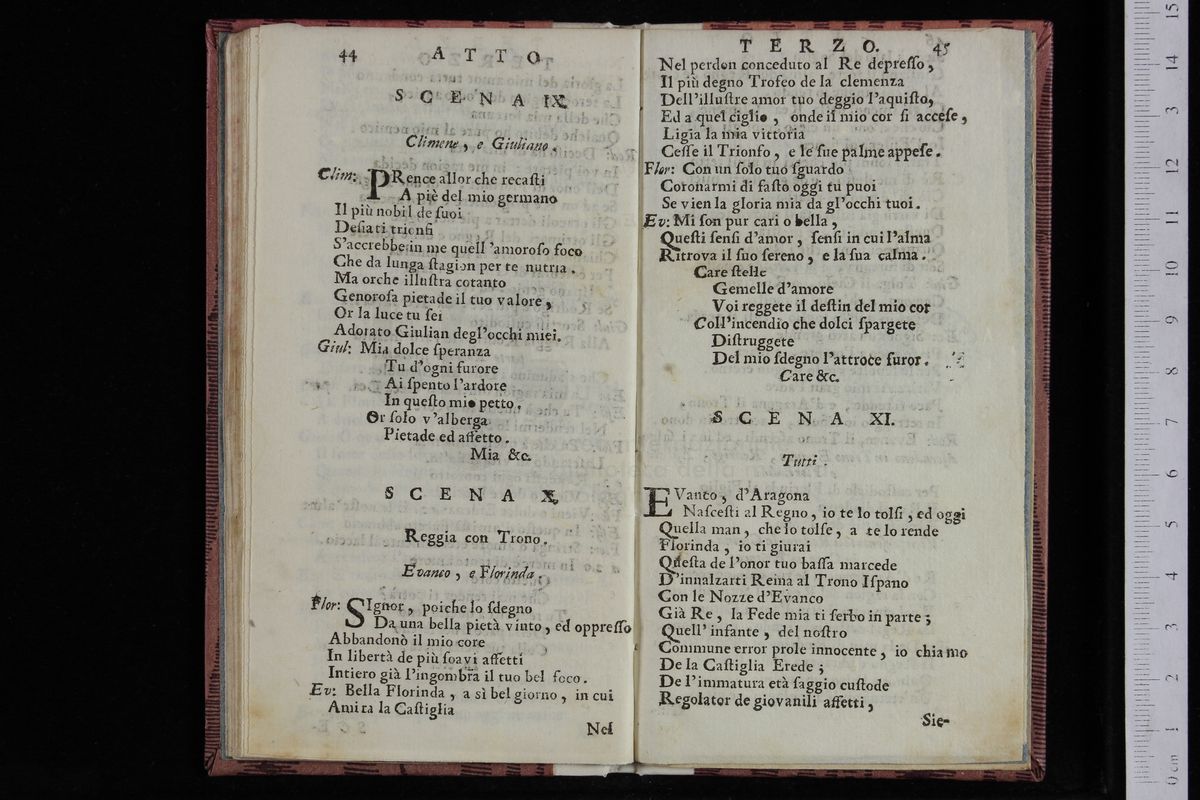 44 ATTO
SCENA IX.
Climene, e Giuliano.
Clim: PRence allor che recaſti
A piè del mio germano
Il più nobil de ſuoi
Deſiati trionfi
S'accrebbe in me quell'amoroſo foco
Che da lunga ſtagion per te nutria.
Ma orche illuſtra cotanto
Genoroſa pietade il tuo valore,
Or la luce tu ſei
Adorato Giulian degl'occhi miei.
Giul: Mia dolce ſperanza
Tu d'ogni furore
Ai ſpento l'ardore
In queſto mio petto,
Or ſolo v'alberga
Pietade ed affetto.
Mia &c.
SCENA X.
Reggia con Trono.
Evanco, e Florinda.
Flor: SIgnor, poiche lo ſdegno
Da una bella pietà vinto, ed oppreſſo
Abbandonò il mio core
In libertà de più ſoavi affetti
Intiero già l'ingombra il tuo bel foco.
Ev: Bella Florinda, a sì bel giorno, in cui
Amira la Caſtiglia
Nel
TERZO. 45
Nel perdon conceduto al Re depreſſo,
Il più degno Trofeo de la clemenza
Dell'illuſtre amor tuo deggio l'aquiſto,
Ed a quel ciglio, onde il mio cor ſi acceſe,
Ligia la mia vittoria
Ceſſe il Trionfo, e le ſue palme appeſe.
Flor: Con un ſolo tuo ſguardo
Coronarmi di faſto oggi tu puoi
Se vien la gloria mia da gl'occhi tuoi.
Ev: Mi ſon pur cari o bella,
Queſti ſenſi d'amor, ſenſi in cui l'alma
Ritrova il ſuo ſereno, e la ſua calma.
Care ſtelle
Gemelle d'amore
Voi reggete il deſtin del mio cor
Coll'incendio che dolci ſpargete
Diſtruggete
Del mio ſdegno l'attroce furor.
Care &c.
SCENA XI.
Tutti.
EVanco, d'Aragona
Naſceſti al Regno, io te lo tolſi, ed oggi
Quella man, che lo tolſe, a te lo rende
Florinda, io ti giurai
Queſta de l'onor tuo baſſa marcede
D'innalzarti Reina al Trono Iſpano
Con le Nozze d'Evanco
Già Re, la Fede mia ti ſerbo in parte;
Quell' infante, del noſtro
Commune error prole innocente, io chiamo
De la Caſtiglia Erede;
De l'immatura età ſaggio cuſtode
Regolator de giovanili affetti,
Sie-